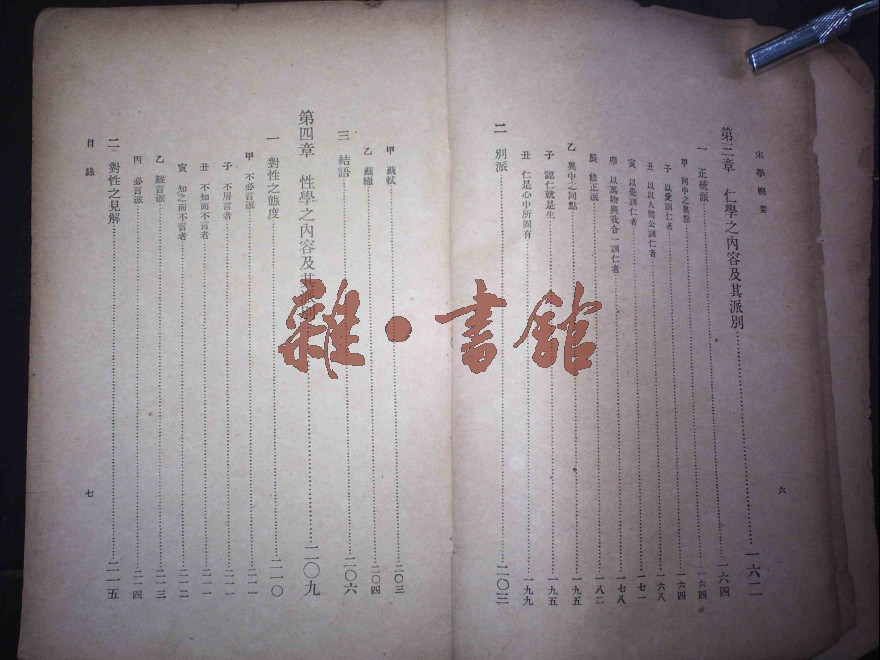 宋學概要
第三章 仁學之內容及其派別……一六二
一 正統派……一六四
甲 同中之異點……一六四
子 以愛訓仁者……一六四
丑 以以人體公訓仁者……一六八
寅 以覺訓仁者……一七一
卯 以萬物與我合一訓仁者……一七八
辰 修正派……一八二
乙 異中之同點……一九五
子 認仁就是生……一九五
丑 仁是心中所固有……一九九
二 別派……二〇三
六
甲 蘇軾……二〇三
乙 蘇轍……二〇四
三 結語……二〇六
第四章 性學之內容及其派別……二〇九
一 對性之態度……二一〇
甲 不必言派……二一一
子 不屑言者……二一一
丑 不知而不言者……二一一
寅 知之而不言者……二一二
乙 難言派……二一三
丙 必言派……二一四
二 對性之見解……二一五
目錄
七
雜·書館